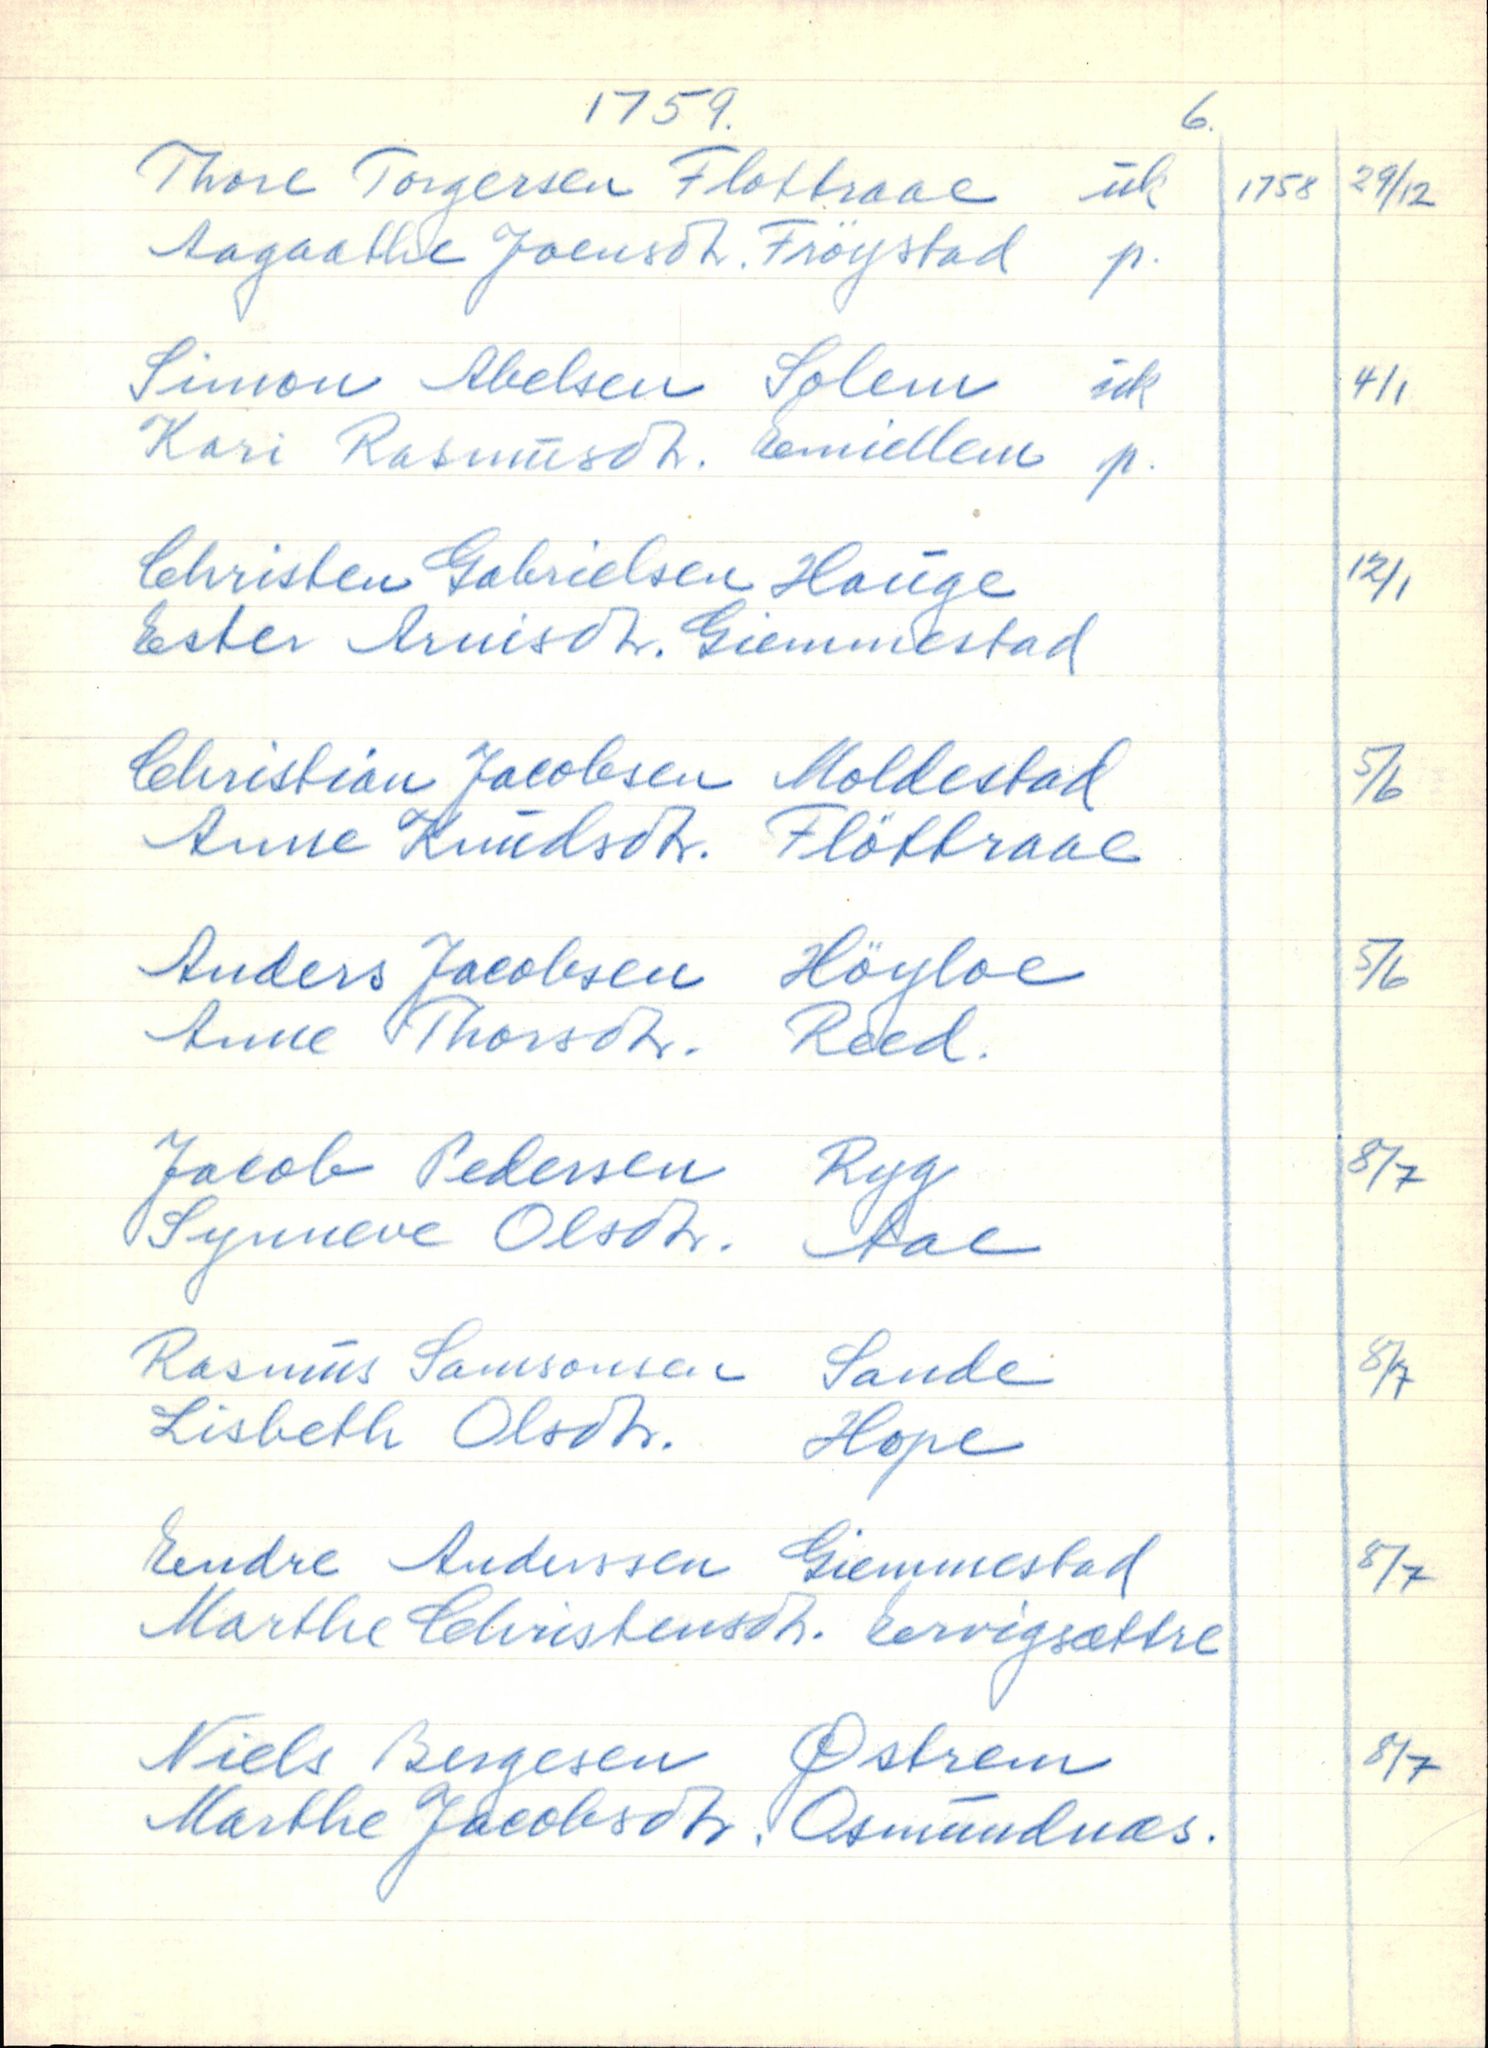 1759. 6.
Thore Torgersen Flottraae uk 1758 29/12
Aagaathe Joensdtr. Fröystad p.
Simon Abelsen Solem uk 4/1
Kari Rasmusdtr. Eemiellem p.
Christen Gabrielsen Hauge 12/1
Ester Arnisdtr. Giemmestad
Christian Jacobsen Moldestad 5/6
Anne Knudsdtr. Flöttraae
Anders Jacobsen Höyloe 5/6
Anne Thorsdtr. Reed.
Jacob Pedersen Ryg 8/7
Synneve Olsdtr. Aae
Rasmus Samsonsen Sande 8/7
Lisbeth Olsdtr. Hope
Endre Anderssen Giemmestad 8/7
Marthe Christensdtr. Eervigsættre
Niels Bergesen Østrem 8/7
Marthe Jacobsdtr. Osmundnæs.